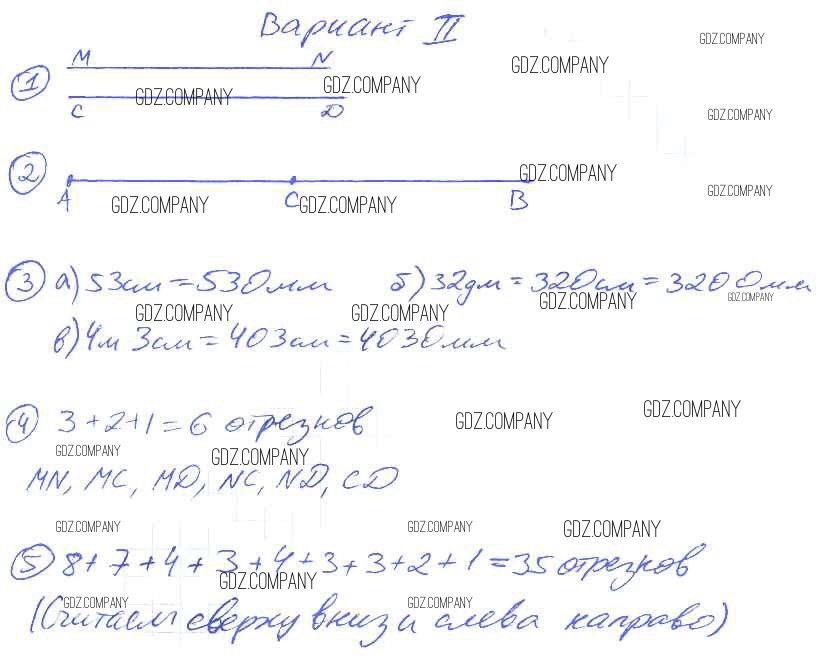 Вариант II
M N GDZ.COMPANY
1 GDZ.COMPANY GDZ.COMPANY GDZ.COMPANY
C D GDZ.COMPANY
2 GDZ.COMPANY
A C B GDZ.COMPANY
GDZ.COMPANY GDZ.COMPANY
3 а) 53см = 530мм б) 32дм = 320см = 3200мм
GDZ.COMPANY GDZ.COMPANY GDZ.COMPANY GDZ.COMPANY
в) 4м 3см = 403см = 4030мм
4 3+2+1=6 отрезков GDZ.COMPANY GDZ.COMPANY
GDZ.COMPANY GDZ.COMPANY
MN, MC, MD, NC, ND, CD
GDZ.COMPANY GDZ.COMPANY GDZ.COMPANY
5 8+7+4+3+4+3+3+2+1=35 отрезков
GDZ.COMPANY
GDZ.COMPANY GDZ.COMPANY
(Считаем сверху вниз и слева направо)